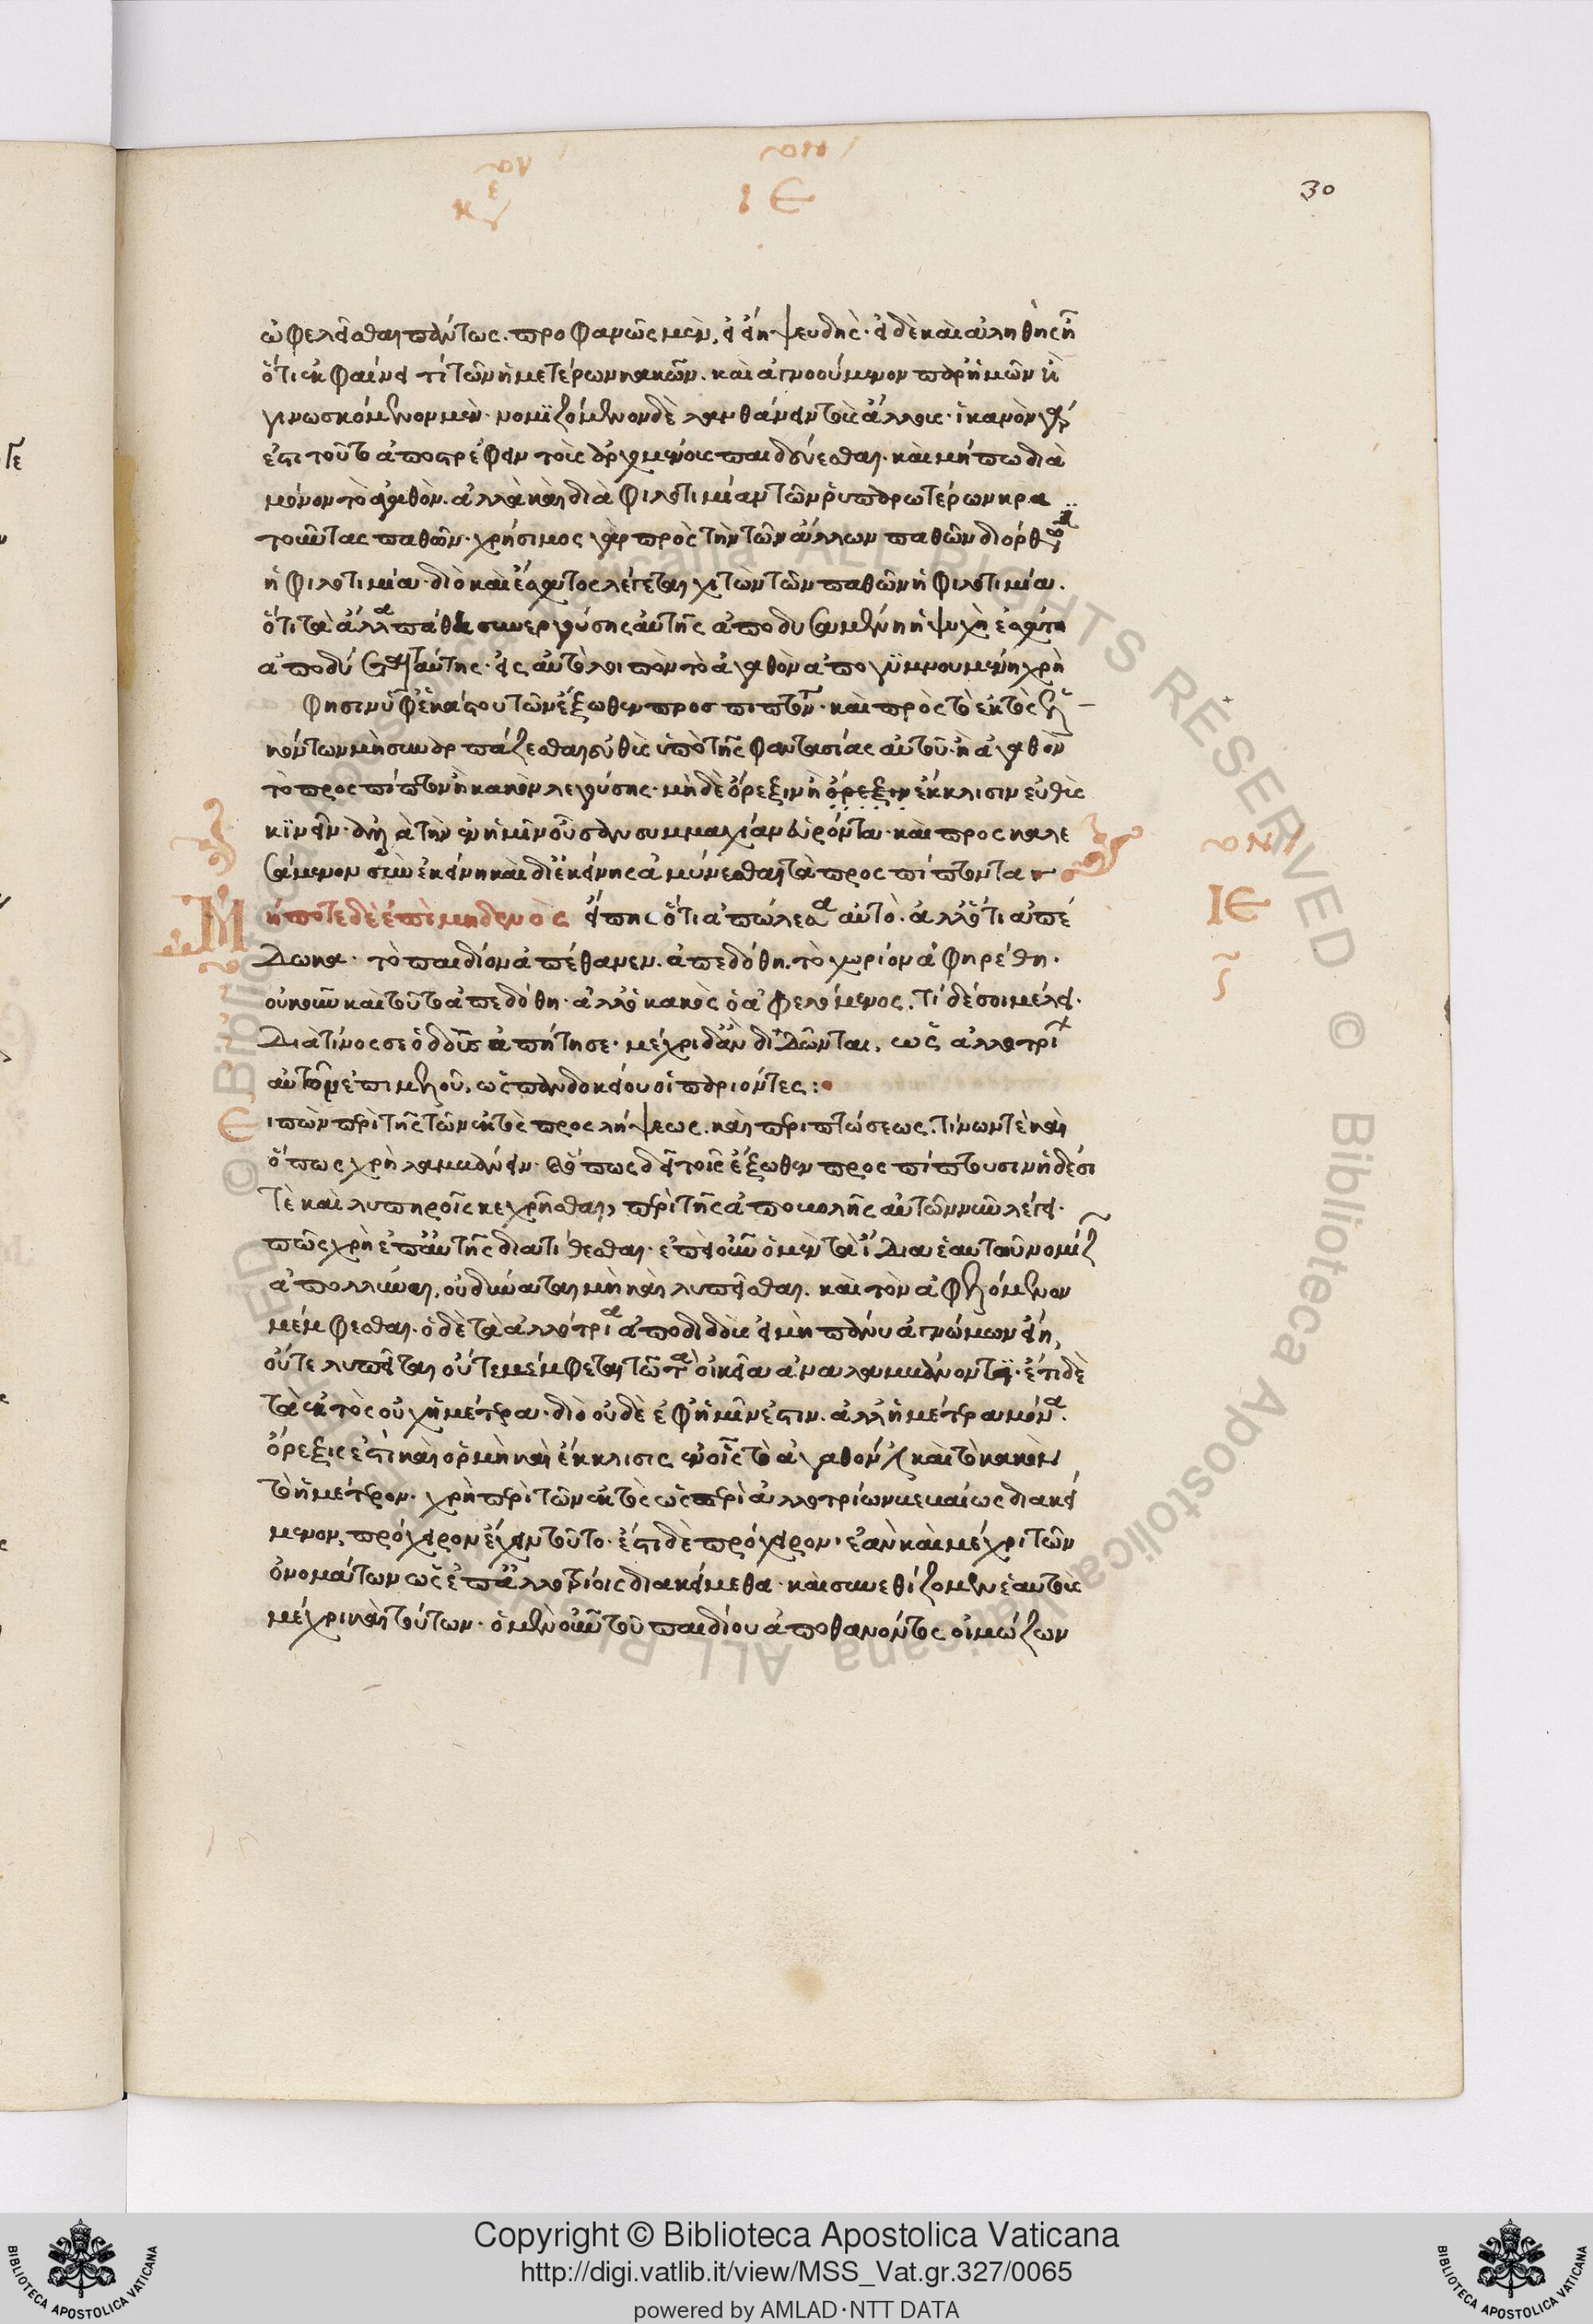 30
ὠφελεῖσθαι πάντως. προφανῶς μὲν, εἰ εἴη ψευδής. εἰ δὲ καὶ ἀληθὴς ᾖ
ὅτι ἐκφαίνει τὶ τῶν ἡμετέρων κακῶν. καὶ ἀγνοούμενον παρ' ἡμῶν ἢ
γινωσκόμενον μὲν. νομιζόμενον δὲ λανθάνειν τοὺς ἄλλους. ἱκανὸν γάρ
ἐστι τοῦτο ἀποστρέφειν τοῖς ἀρχομένοις παιδεύεσθαι. καὶ μήπω διὰ
μόνον τὸ ἀγαθὸν. ἀλλὰ καὶ διὰ φιλοτιμίαν τῶν ῥυπαρωτέρων κρα
τοῦντας παθῶν. χρήσιμος γὰρ πρὸς τὴν τῶν ἄλλων παθῶν διόρθωσιν
ἡ φιλοτιμία. διὸ καὶ ἔσχατος λέγεται χιτὼν τῶν παθῶν ἡ φιλοτιμία.
ὅτι τὰ ἄλλα πάθη συνεργούσης αὐτῆς ἀποδυσαμένη ἡ ψυχὴ ἐσχάτη
ἀποδύεται αὐτῆς. εἰς αὐτὸ λοιπὸν τὸ ἀγαθὸν ἀπογυμνουμένη χρὴ
φησιν ἐφ' ἑκάστου τῶν ἔξωθεν προσπιπτόντων. καὶ πρὸς τὸ ἐκτὸς
κόντων μὴ συναρπάζεσθαι εὐθὺς ὑπὸ τῆς φαντασίας αὐτοῦ. ἢ ἀγαθὸν
τὸ προσπίπτον ἢ κακὸν λεγούσης. μὴ δὲ ὄρεξιν ἢ ὄρεξιν ἔκκλισιν εὐθὺς
κινεῖν. ἀλλὰ τὴν ἐν ἡμῖν οὖσαν συμμαχίαν εὑρόντα. καὶ προσκαλε
σάμενον σὺν ἐκείνῃ καὶ δι' ἐκείνης ἀμύνεσθαι τὰ προσπίπτοντα
Μήποτε δὲ ἐπὶ μηδενὸς εἴπῃς ὅτι ἀπώλεσα αὐτὸ. ἀλλ' ὅτι ἀπέ
ΙΕ
δωκα. τὸ παιδίον ἀπέθανεν. ἀπεδόθη. τὸ χωρίον ἀφῃρέθη.
οὐκοῦν καὶ τοῦτο ἀπεδόθη. ἀλλὰ κακὸς ὁ ἀφελόμενος. τί δέ σοι μέλει.
διὰ τίνος σε ὁ δοὺς ἀπῄτησε. μέχρι δ' ἂν διδῶνται, ὡς ἀλλοτρίων
αὐτῶν ἐπιμελοῦ, ὡς πανδοκείου οἱ παριόντες:
Εἰπὼν περὶ τῆς τῶν ἐκτὸς προσλήψεως. καὶ περιπτώσεως. τίνων τὲ καὶ
ὅπως χρὴ λαμβάνειν. καὶ ὅπως δεῖ τοῖς ἔξωθεν προσπίπτουσιν ἡδέσι
τὲ καὶ λυπηροῖς κεχρῆσθαι, περὶ τῆς ἀποβολῆς αὐτῶν νῦν λέγει.
πῶς χρὴ ἐπ' αὐτῆς διατίθεσθαι. ἐπεὶ οὖν ὁ μὲν τὰ ἴδια ἑαυτοῦ νομίζων
ἀπολλύναι, οὐ δύναται μὴ καὶ λυπεῖσθαι. καὶ τὸν ἀφελόμενον
μέμφεσθαι. ὁ δὲ τὰ ἀλλότρια ἀποδιδοὺς εἰ μὴ πάνυ ἀγνώμων εἴη,
οὔτε λυπεῖται οὔτε μέμφεται τῷ τὰ οἰκεῖα ἀναλαμβάνοντι. ἔτι δὲ
τὰ ἐκτὸς οὐχ ἡμέτερα. διὸ οὐδὲ ἐφ' ἡμῖν ἐστιν. ἀλλ' ἡμέτερα μόνα.
ὄρεξις ἐστὶ καὶ ὁρμὴ καὶ ἔκκλισις ἐν οἷς τὸ ἀγαθόν καὶ τὸ κακὸν
τὸ ἡμέτερον. χρὴ περὶ τῶν ἐκτὸς ὡς περὶ ἀλλοτρίων βεβαίως διακεί
μενον, πρόχειρον ἔχειν τοῦτο. ἔσται δὲ πρόχειρον, ἐὰν καὶ μέχρι τῶν
ὀνομάτων ὡς ἐπ' ἀλλοτρίοις διακείμεθα. καὶ συνεθίζομεν ἑαυτοὺς
μέχρι καὶ τούτων. ὁ μὲν οὖν τοῦ παιδίου ἀποθανόντος οἰμώζων
Copyright © Biblioteca Apostolica Vaticana
http://digi.vatlib.it/view/MSS_Vat.gr.327/0065
powered by AMLAD·NTT DATA
BIBLIOTECA APOSTOLICA VATICANA
BIBLIOTECA APOSTOLICA VATICANA